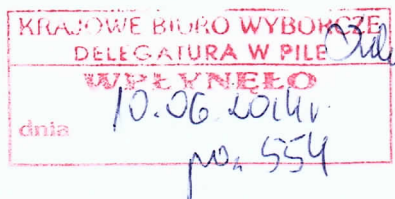 KRAJOWE BIURO WYBORCZE
DELEGATURA W PILE
WPŁYNĘŁO
dnia 10.06.2014r.
554